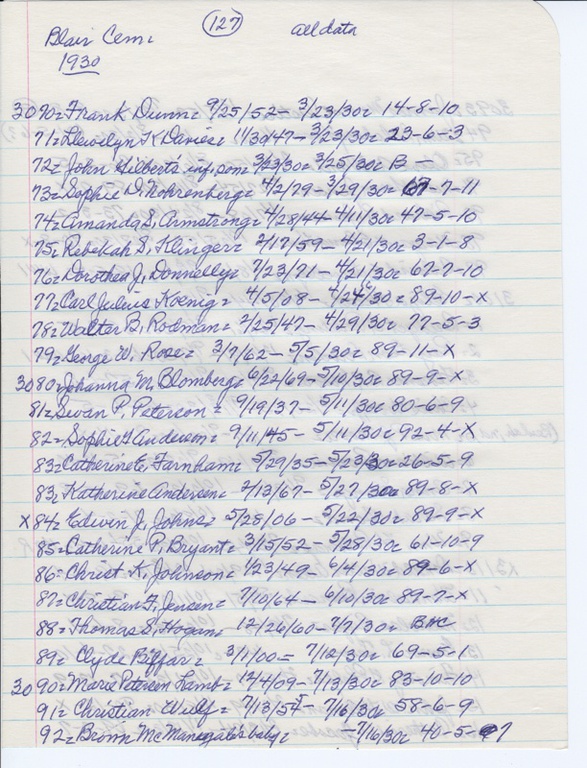 127
all data
Blair Cem:
1930
3070= Frank Dunn= 9/25/52- 3/23/30= 14-8-10
71= Llewelyn K Davies= 11/30/47- 3/23/30= 23-6-3
72= John Hilbert's inf. son= 3/23/30= 3/25/30= B -
73= Sophie D. Nohrenberg= 4/2/79- 3/29/30= 67-7-11
74= Amanda S. Armstrong= 4/28/44- 4/11/30= 47-5-10
75= Rebekah S. Klinger= 2/17/59- 4/21/30= 3-1-8
76= Dorothea J. Donnelly= 7/23/71- 4/21/30= 67-7-10
77= Carl Julius Koenig= 4/5/08- 4/24/30= 89-10-X
78= Walter B. Rodman= 2/25/47- 4/29/30= 77-5-3
79= George W. Rose= 3/7/62- 5/5/30= 89-11-X
3080= Johanna M. Blomberg= 6/22/69- 5/10/30= 89-9-X
81= Swan P. Peterson= 9/19/37- 5/11/30= 80-6-9
82= Sophie Andersen= 9/11/45- 5/11/30= 92-4-X
83= Catherine E. Farnham= 5/29/35- 5/23/30= 26-5-9
83, Katherine Andersen= 2/13/67- 5/27/30= 89-8-X
X 84= Edwin J. Johns= 5/25/06- 5/22/30= 89-9-X
85= Catherine P. Bryant= 3/15/52- 5/28/30= 61-10-9
86= Christ K. Johnson= 1/23/49- 6/4/30= 89-6-X
87= Christian F. Jensen= 7/10/64- 6/10/30= 89-7-X
88= Thomas S. Hogan= 12/26/60- 7/7/30= BHC
89= Clyde Biffar= 3/1/00= 7/12/30= 69-5-1
3090= Marie Petersen Lamb= 12/4/09- 7/13/30= 83-10-10
91= Christian Wulf= 7/13/55- 7/16/30= 58-6-9
92= Brown baby= -7/16/30= 40-5-7